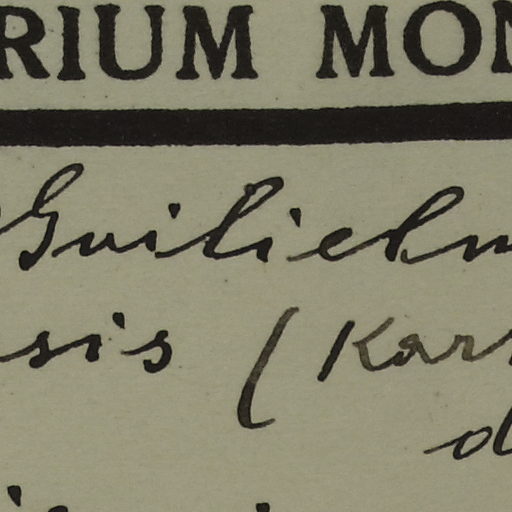 RIUM MON
Guilielm
sis (Kars
d